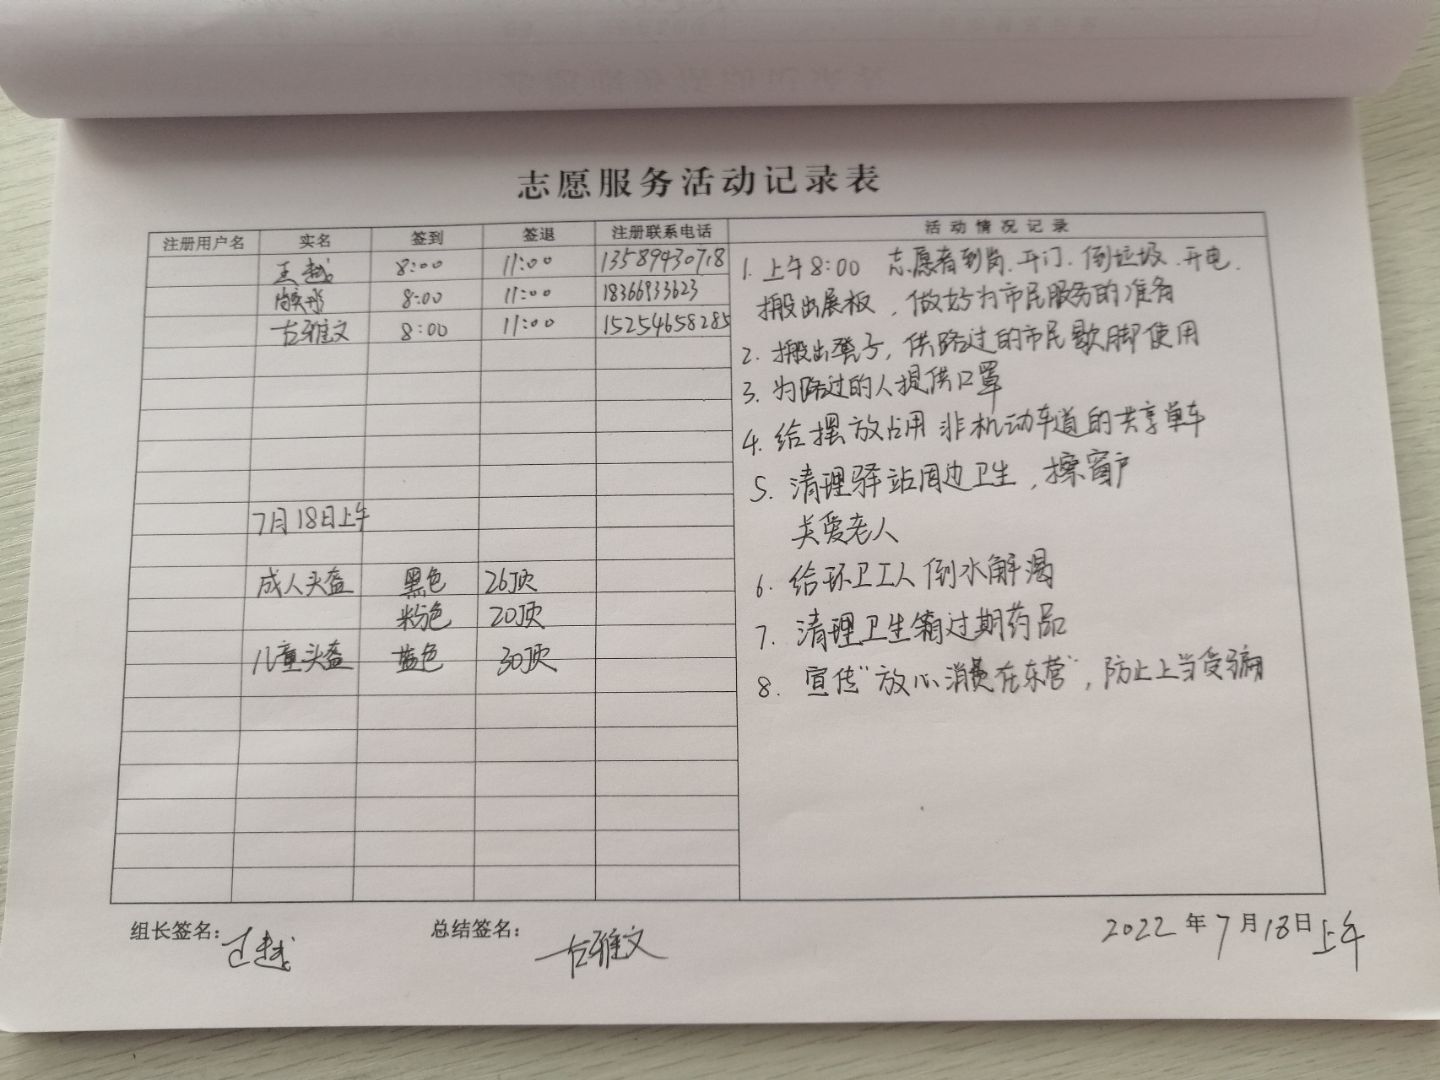 志愿服务活动记录表
注册用户名 实名 签到 签退 注册联系电话 活动情况记录
王越 8:00 11:00 13589430718
8:00 11:00 18366933623
古雅文 8:00 11:00 15254658285
7月18日上午
成人头盔 黑色 26顶
粉色 20顶
儿童头盔 蓝色 30顶
1. 上午8:00 志愿者到岗、开门、倒垃圾、开电、
搬出展板，做好为市民服务的准备
2. 搬出凳子，供路过的市民歇脚使用
3. 为路过的人提供口罩
4. 给摆放占用非机动车道的共享单车
5. 清理驿站周边卫生，擦窗户
关爱老人
6. 给环卫工人倒水解渴
7. 清理卫生箱过期药品
8. 宣传“放心消费在东营”，防止上当受骗
组长签名：王越 总结签名：古雅文 2022年7月18日上午